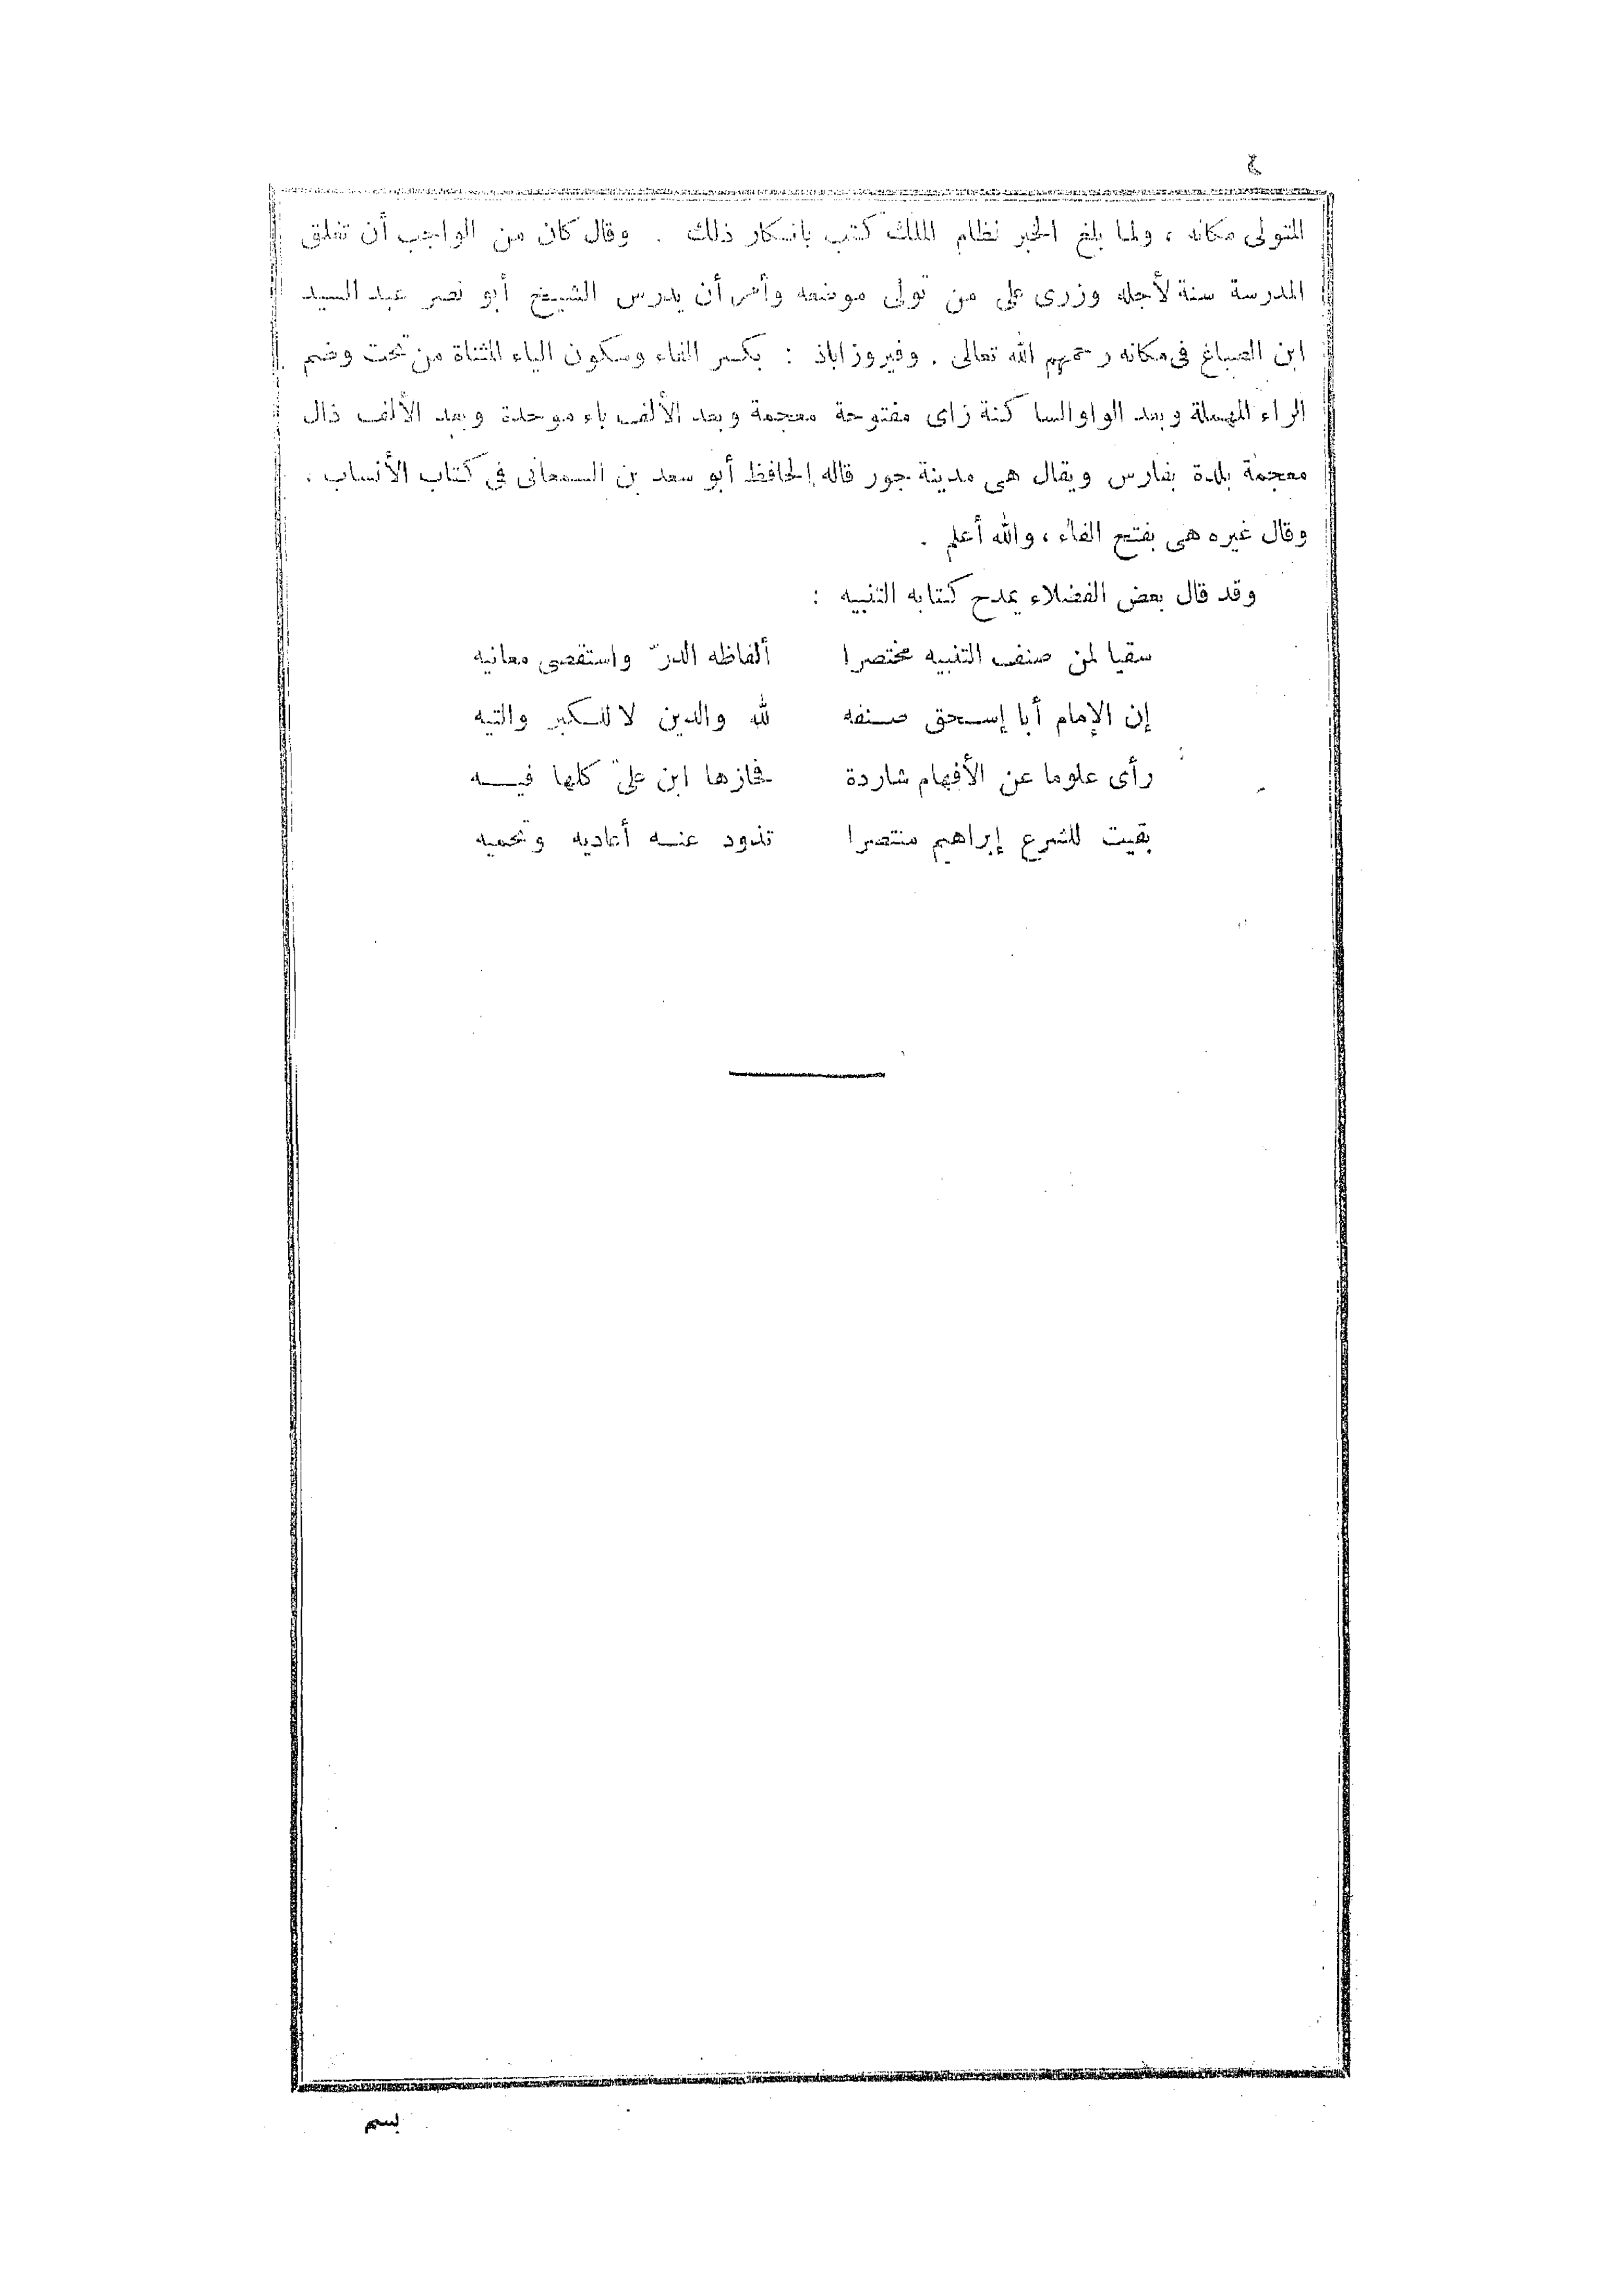 ٤
المتولى مكانه ، ولما بلغ الخبر نظام الملك كتب بانكار ذلك . وقال كان من الواجب أن تغلق
المدرسة سنة لأجله وزرى على من تولى موضعه وأمر أن يدرس الشيخ أبو نصر عبد السيد
ابن الصباغ فى مكانه رحمهم الله تعالى . وفيروزاباذ : بكسر الفاء وسكون الياء المثناة من تحت وضم
الراء المهملة وبعد الواو الساكنة زاى مفتوحة معجمة وبعد الألف باء موحدة وبعد الألف ذال
معجمة بلدة بفارس ويقال هى مدينة جور قاله الحافظ أبو سعد بن السمعانى في كتاب الأنساب .
وقال غيره هى بفتح الفاء ، والله أعلم .
وقد قال بعض الفضلاء يمدح كتابه التنبيه :
سقيا لمن صنف التنبيه مختصرا ألفاظه الدرّ واستقصى معانيه
إن الإمام أبا إسحق صنفه لله والدين لا للكبر والتيه
رأى علوما عن الأفهام شاردة فحازها ابن علىّ كلها فيه
بقيت للشرع إبراهيم منتصرا تذود عنه أعاديه وتحميه
بسم